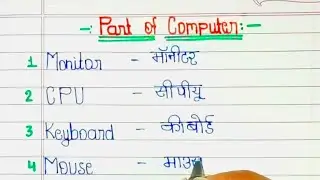 -: Part of Computer:-
1 Monitor - मॉनीटर
2 CPU - सीपीयू
3 Keyboard - कीबोर्ड
4 Mouse - माउस